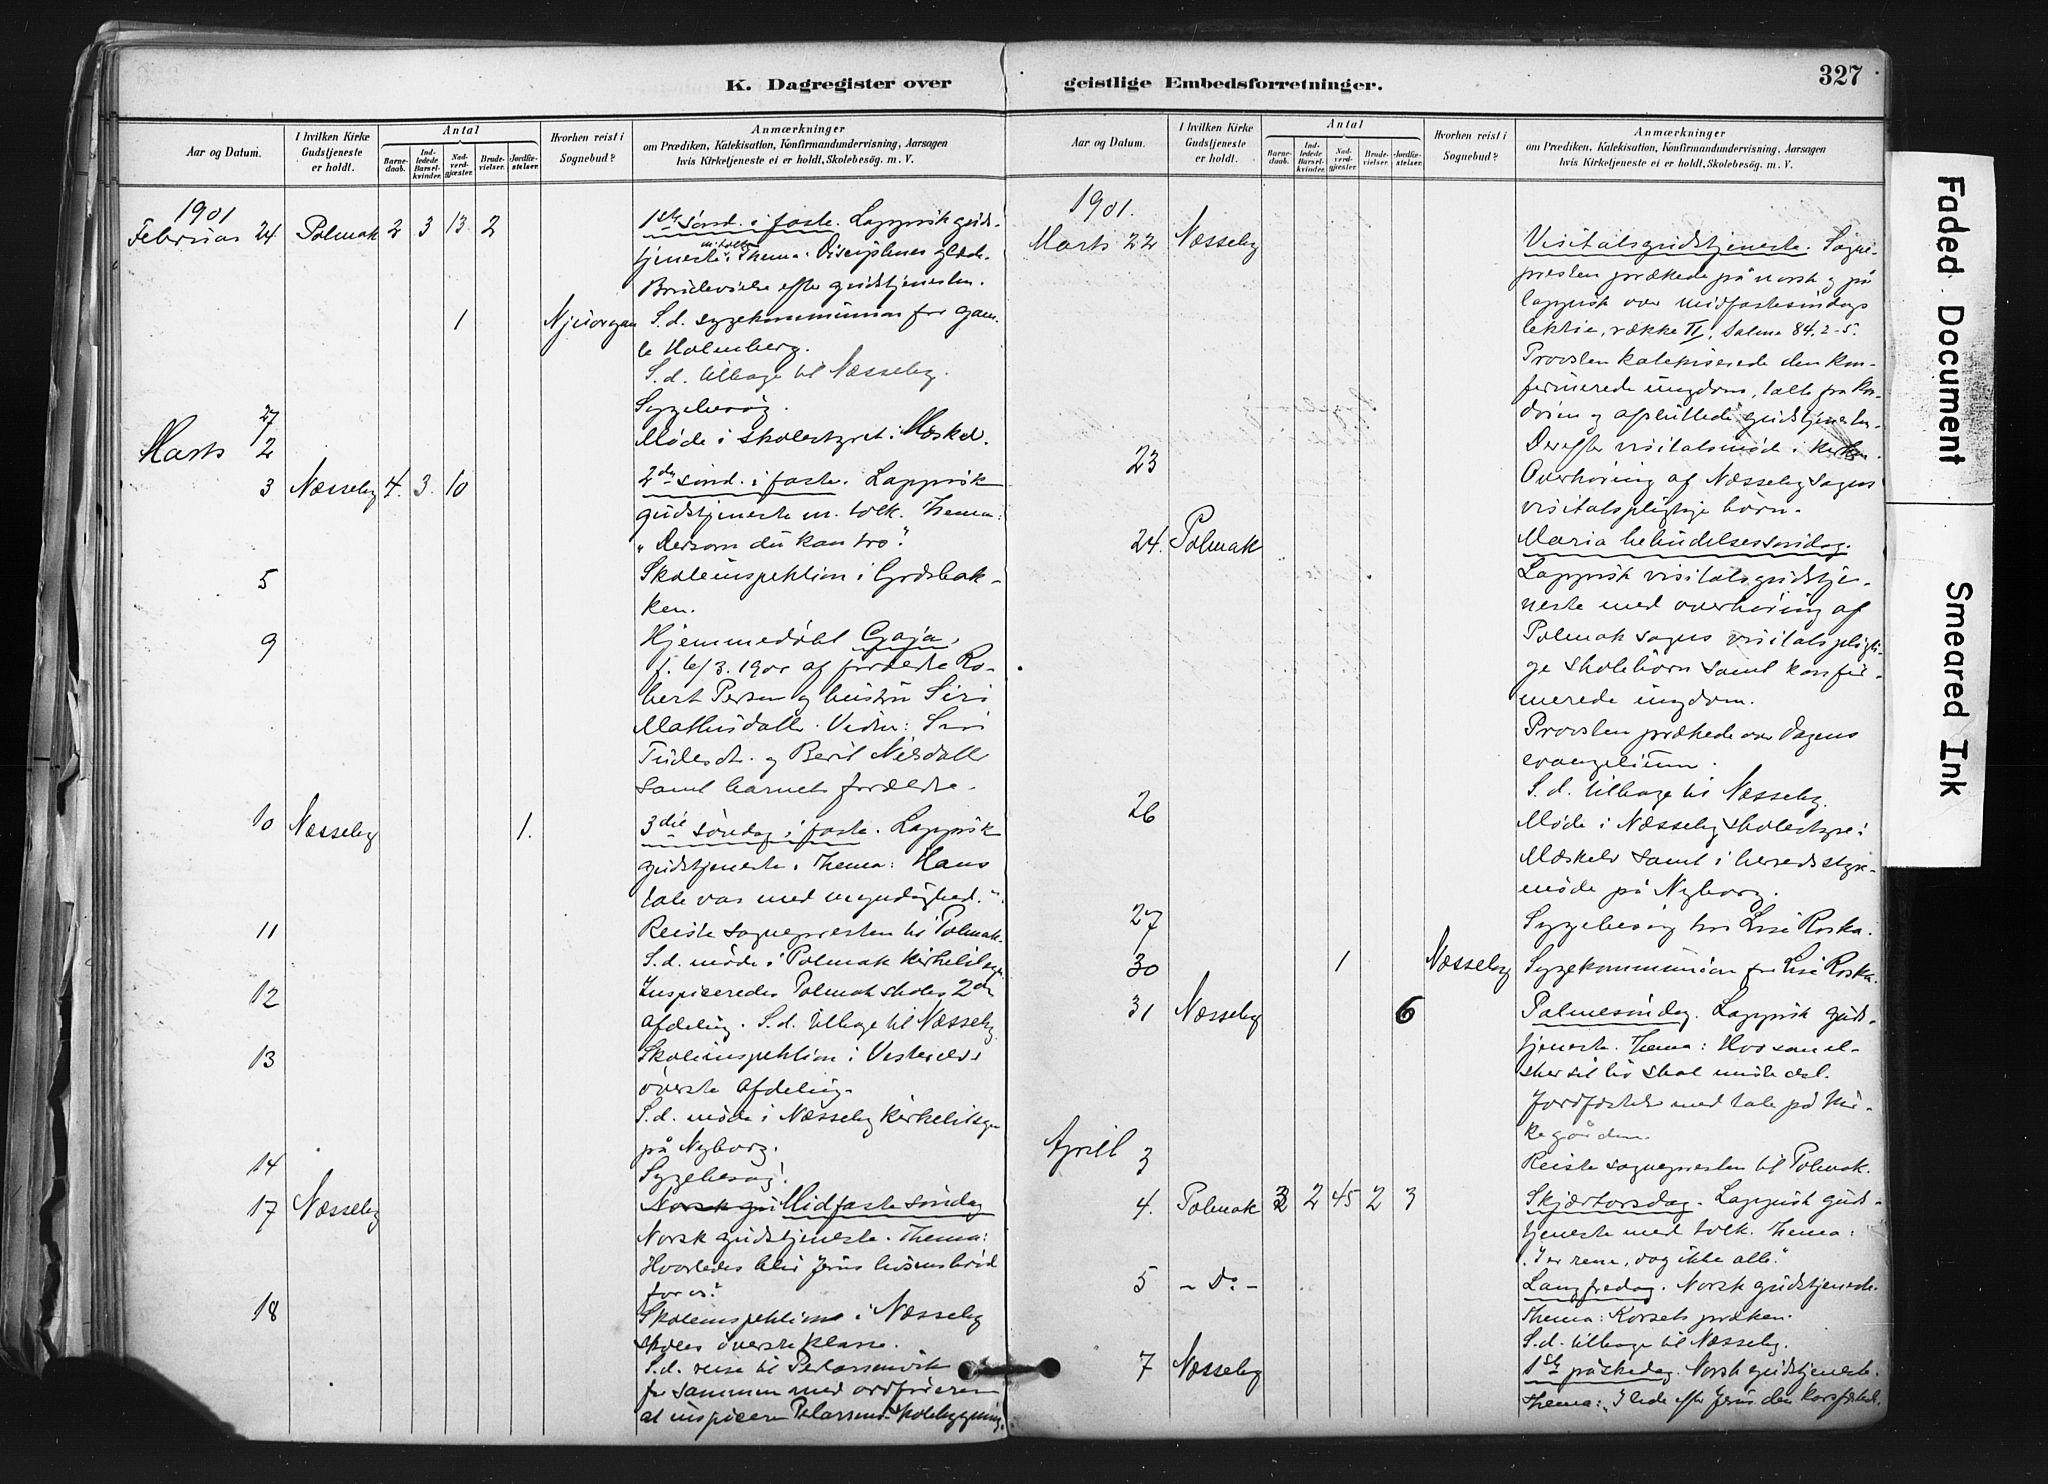 K. Dagregister over geistlige Embedsforretninger.
327
Aar og Datum.
I hvilken Kirke Gudstjeneste er holdt.
Antal
Barnedaab.
Indledede Barselkvinder.
Nadverdgjæster.
Brudevielser.
Jordfæstelser.
Hvorhen reist i Sognebud?
Anmærkninger
om Prædiken, Katekisation, Konfirmandundervisning, Aarsagen
hvis Kirketjeneste ei er holdt, Skolebesög. m. V.
1901
Februar 24 Polmak 2 3 13 2 1ste sönd. i faste. Lappisk guds-
tjeneste m. tolk. Thema: Disciplenes glæde.
Brudevielse efter gudstjenesten.
1 Njuorgan S. d. sygekommunion for gam-
le Holmberg.
S. d. tilbage til Næsseby.
27 Sygebesög.
Marts 2 Møde i skolestyret i Mæskel.
3 Næsseby 4. 3. 10 2den sönd. i faste. Lappisk
gudstjeneste m. tolk. Thema:
"Dersom du kan tro".
5 Skoleinspektion i Græsbak-
ken.
9 Hjemmedöbt Gaja,
f. 6/3. 1901 af forældre Ro-
bert Persen og hustru Siri
Mathisdatter. Vidner: Siri
og Berit Nilsdatter
samt barnets forældre.
10 Næsseby 1. 3die söndag i faste. Lappisk
gudstjeneste. Thema: Hans
tale var med myndighed."
11 Reiste sognepresten til Polmak.
S. d. møde i Polmak kirketilsyn
12 Inspiceredes Polmak skoles 2den
afdeling. S. d. tilbage til Næsseby
13 Skoleinspektion i Vesterelvs
överste afdeling.
S. d. møde i Næsseby kirketilsyn
på Nyborg.
14 Sygebesög.
17 Næsseby Norsk gu Midfaste söndag
Norsk gudstjeneste. Thema:
Hvorledes blir Jesus livsens bröd
for os?
18 Skoleinspektion i Næsseby
skoles överste klasse.
S. d. reise til Perlarsenvik
for sammen med ordföreren
at inspicere Perlarsenv. skolebygning.
Aar og Datum.
I hvilken Kirke Gudstjeneste er holdt.
Antal
Barnedaab.
Indledede Barselkvinder.
Nadverdgjæster.
Brudevielser.
Jordfæstelser.
Hvorhen reist i Sognebud?
Anmærkninger
om Prædiken, Katekisation, Konfirmandundervisning, Aarsagen
hvis Kirketjeneste ei er holdt, Skolebesög. m. V.
1901.
Marts 22 Næsseby Visitatsgudstjeneste. Sogne-
presten prækede på norsk og på
lappisk over midfastesöndags
lektie, række II, Salme 84. 2-5.
Provsten katekiserede den kon-
firmerede ungdom, talte fra kor-
dören og afsluttede gudstjenesten.
Derefter visitatsmöde i kirken.
23 Overhöring af Næsseby sogns
visitatspligtige börn.
24. Polmak Maria bebudelsessöndag.
Lappisk visitatsgudstje-
neste med overhöring af
Polmak sogns visitatspligti-
ge skolebörn samt konfir-
merede ungdom.
Provsten prækede over dagens
evangelium.
S. d. tilbage til Næsseby.
26 Møde i Næsseby skolestyre i
Mæskelv samt i herredsstyre-
möde på Nyborg.
27 Sygebesög hos Lisi Roska.
30 1 Næsseby Sygekommunion for Lisi Roska.
31 Næsseby 6 Palmesöndag. Lappisk guds-
tjeneste. Thema: Hvo som el-
sker sit liv skal miste det.
Jordfæstelse med tale på kir-
kegården.
April 3 Reiste sognepresten til Polmak.
4. Polmak 3 2 45 2 3 Skjærtorsdag. Lappisk guds-
tjeneste med tolk. Thema:
"I er rene, dog ikke alle."
5 - Do - Langfredag. Norsk gudstjeneste.
Thema: Korsets præken.
S. d. tilbage til Næsseby.
7 Næsseby 1ste påskedag. Norsk gudstjeneste.
Thema: "I lede efter Jesus den korsfæstede.
Faded Document
Smeared Ink